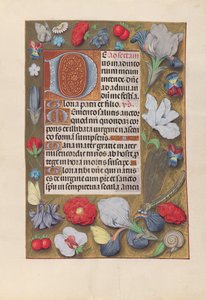 DE Ad sextam
us in adiuto
rium meum
intende Dñe
ad adiuuan
dum me festia
Gloria patri et filio
Memento salutis auctor
quod nri quondam cor
poris ex illibata virgine nascen
do formam sumpseris
Maria mater gratie mater
misericordie tu nos ab hoste p
tege et in hora mortis suscipe
Gloria tibi dñe qui natus
es de virgine cum pie et sancto
spū in sempiterna secula Amen